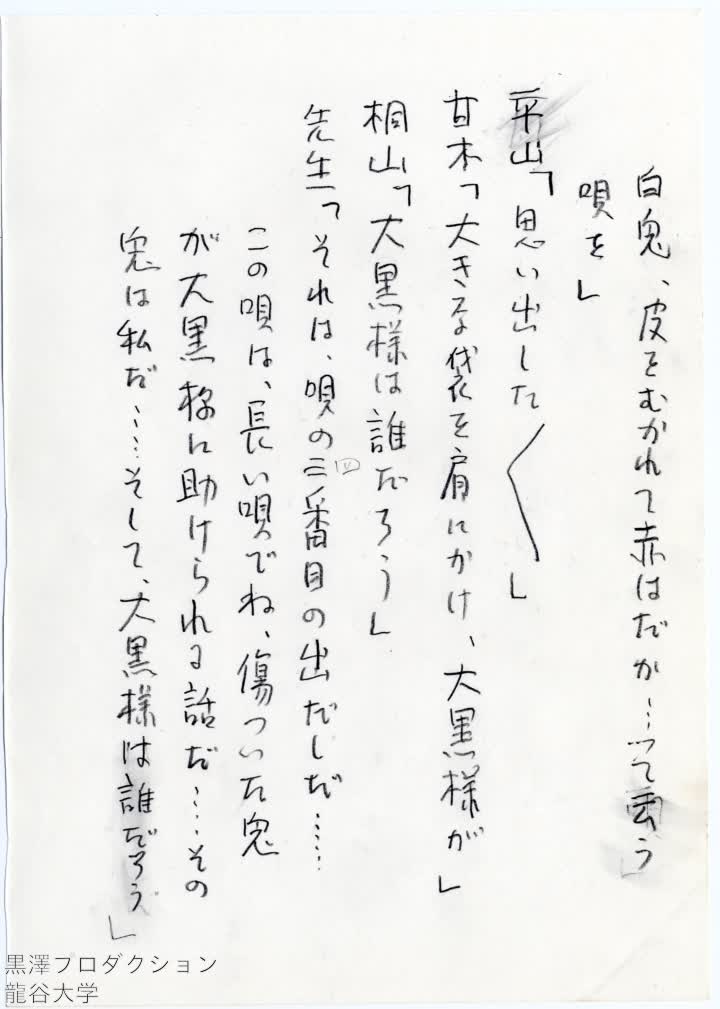 白兎、皮をむかれて赤はだか……って云う
唄を」
平山「思い出した〱」
甘木「大きな袋を肩にかけ、大黒様が」
桐山「大黒様は誰だろう」
先生「それは、唄の三番目の出だしだ……
この唄は、長い唄でね、傷ついた兎
が大黒様に助けられる話だ……その
兎は私だ……そして、大黒様は誰だろう」
黒澤プロダクション
龍谷大学